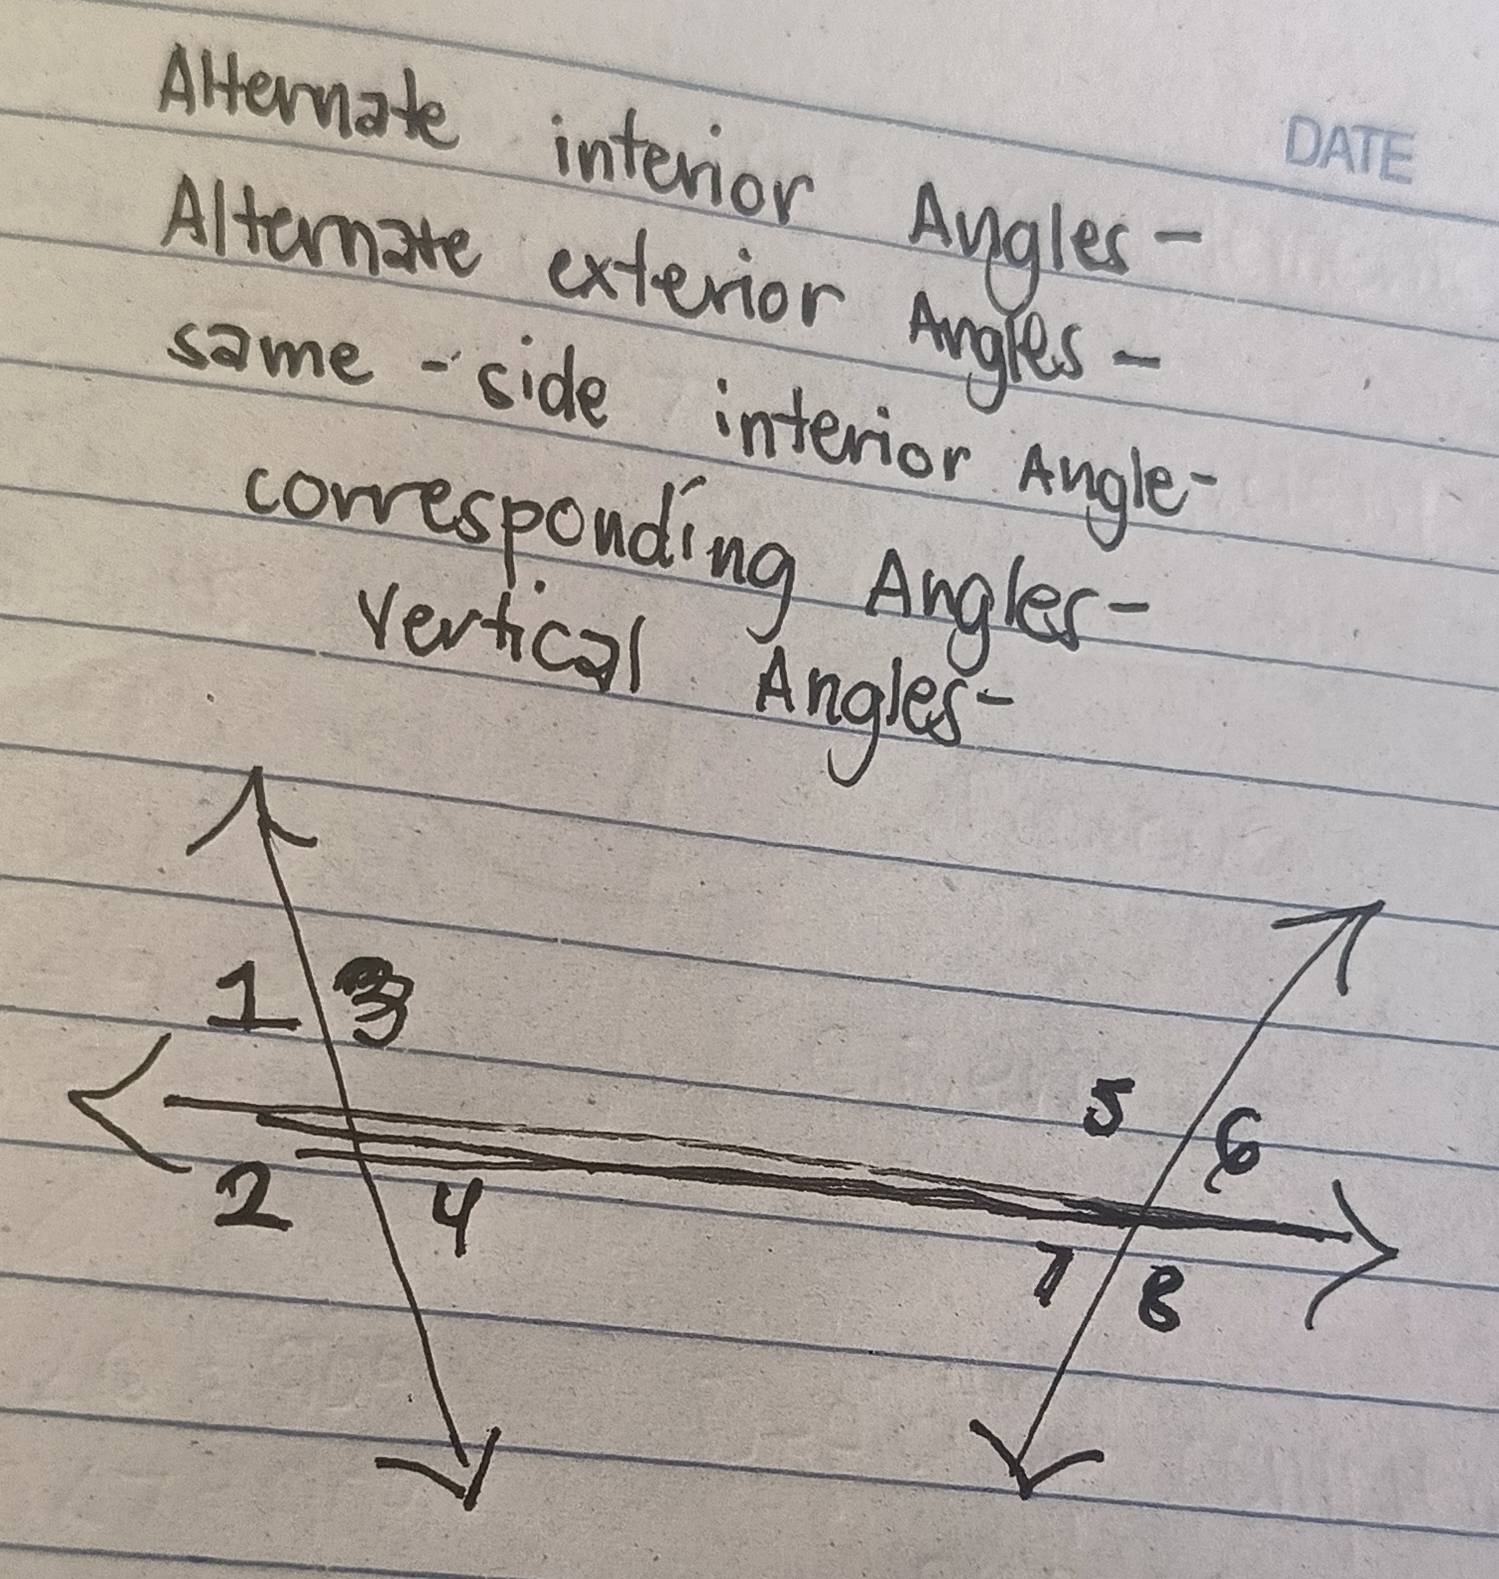 DATE
Alternate interior Angles-
Alternate exterior Angles-
same-side interior Angle-
corresponding Angles-
Vertical Angles-
1 3
5 6
2 4
7 8